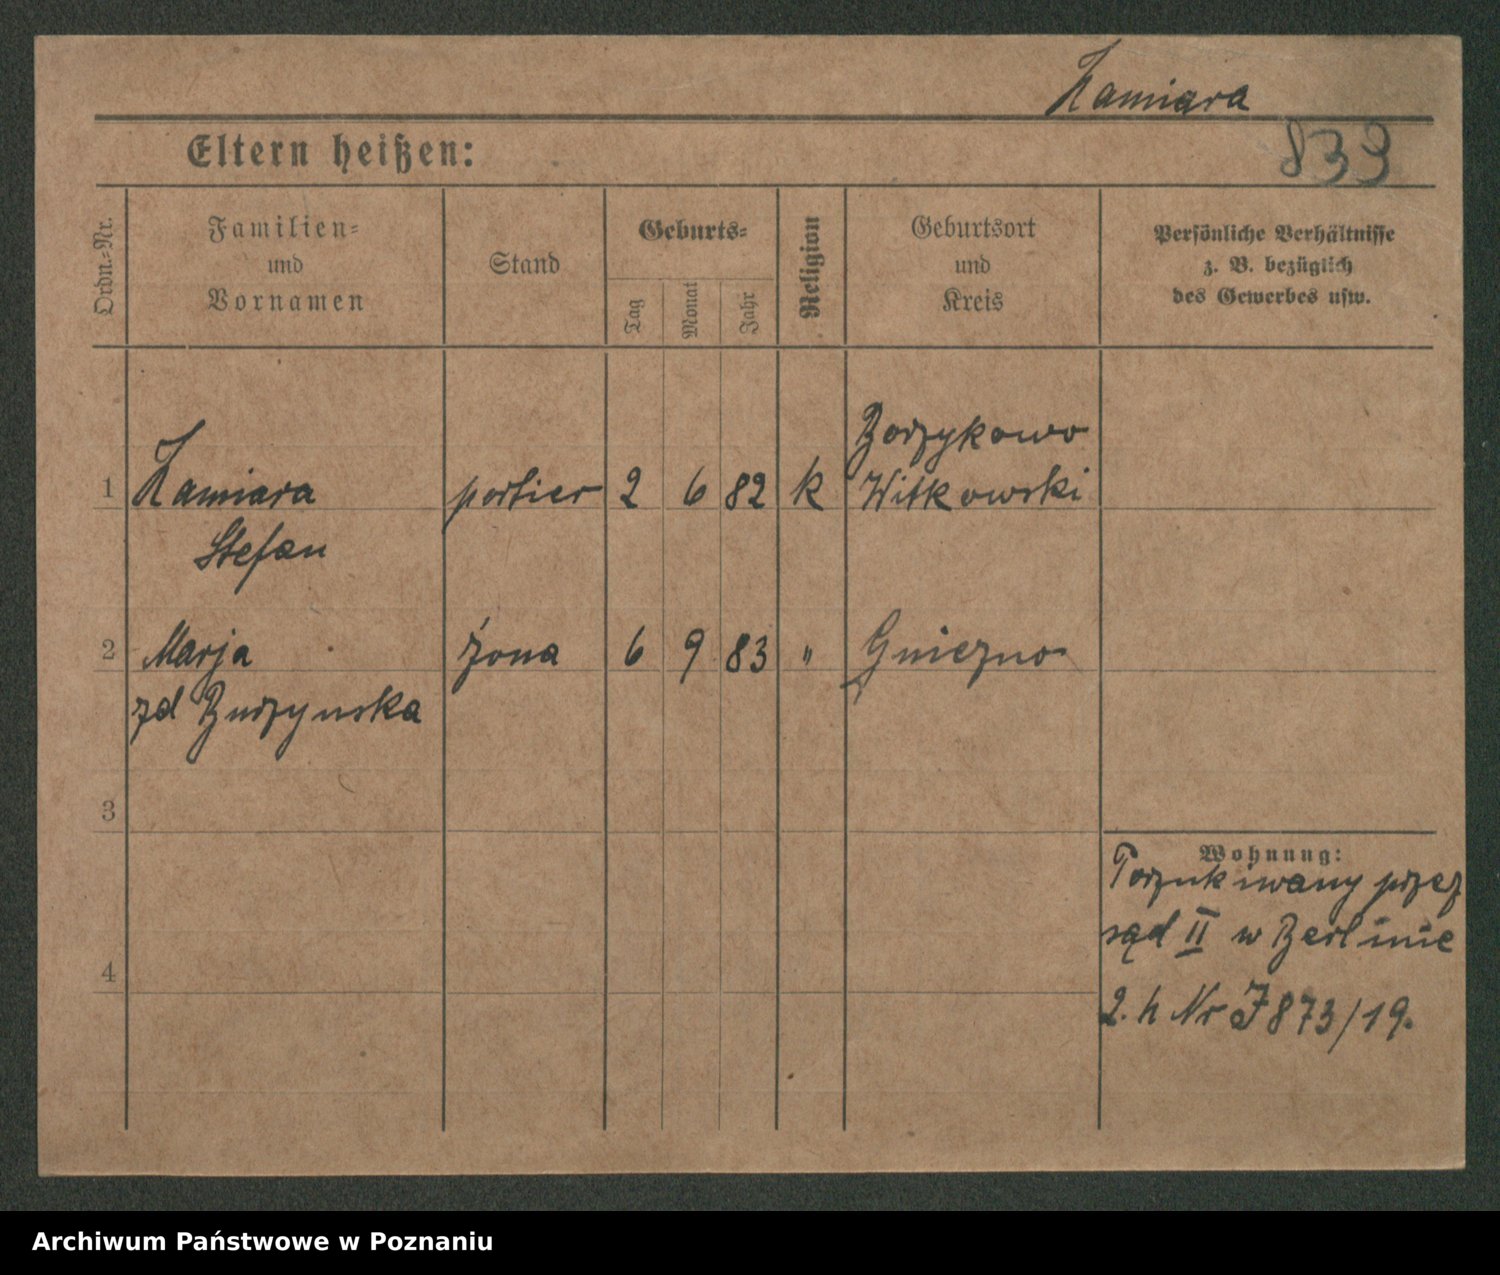 Kamiara
839
Eltern heißen:
Ordn.-Nr.
Familien-
und
Vornamen
Stand
Geburts-
Tag
Monat
Jahr
Religion
Geburtsort
und
Kreis
Persönliche Verhältnisse
z. B. bezüglich
des Gewerbes usw.
1 Kamiara portier 2 6 82 k Borzykowo
Witkowski
Stefan
2 Marja żona 6 9 83 " Gniezno
zd Burzynska
3
Wohnung:
Poszukiwany przez
sąd II w Berlinie
4
2. h Nr J 873/19.
Archiwum Państwowe w Poznaniu